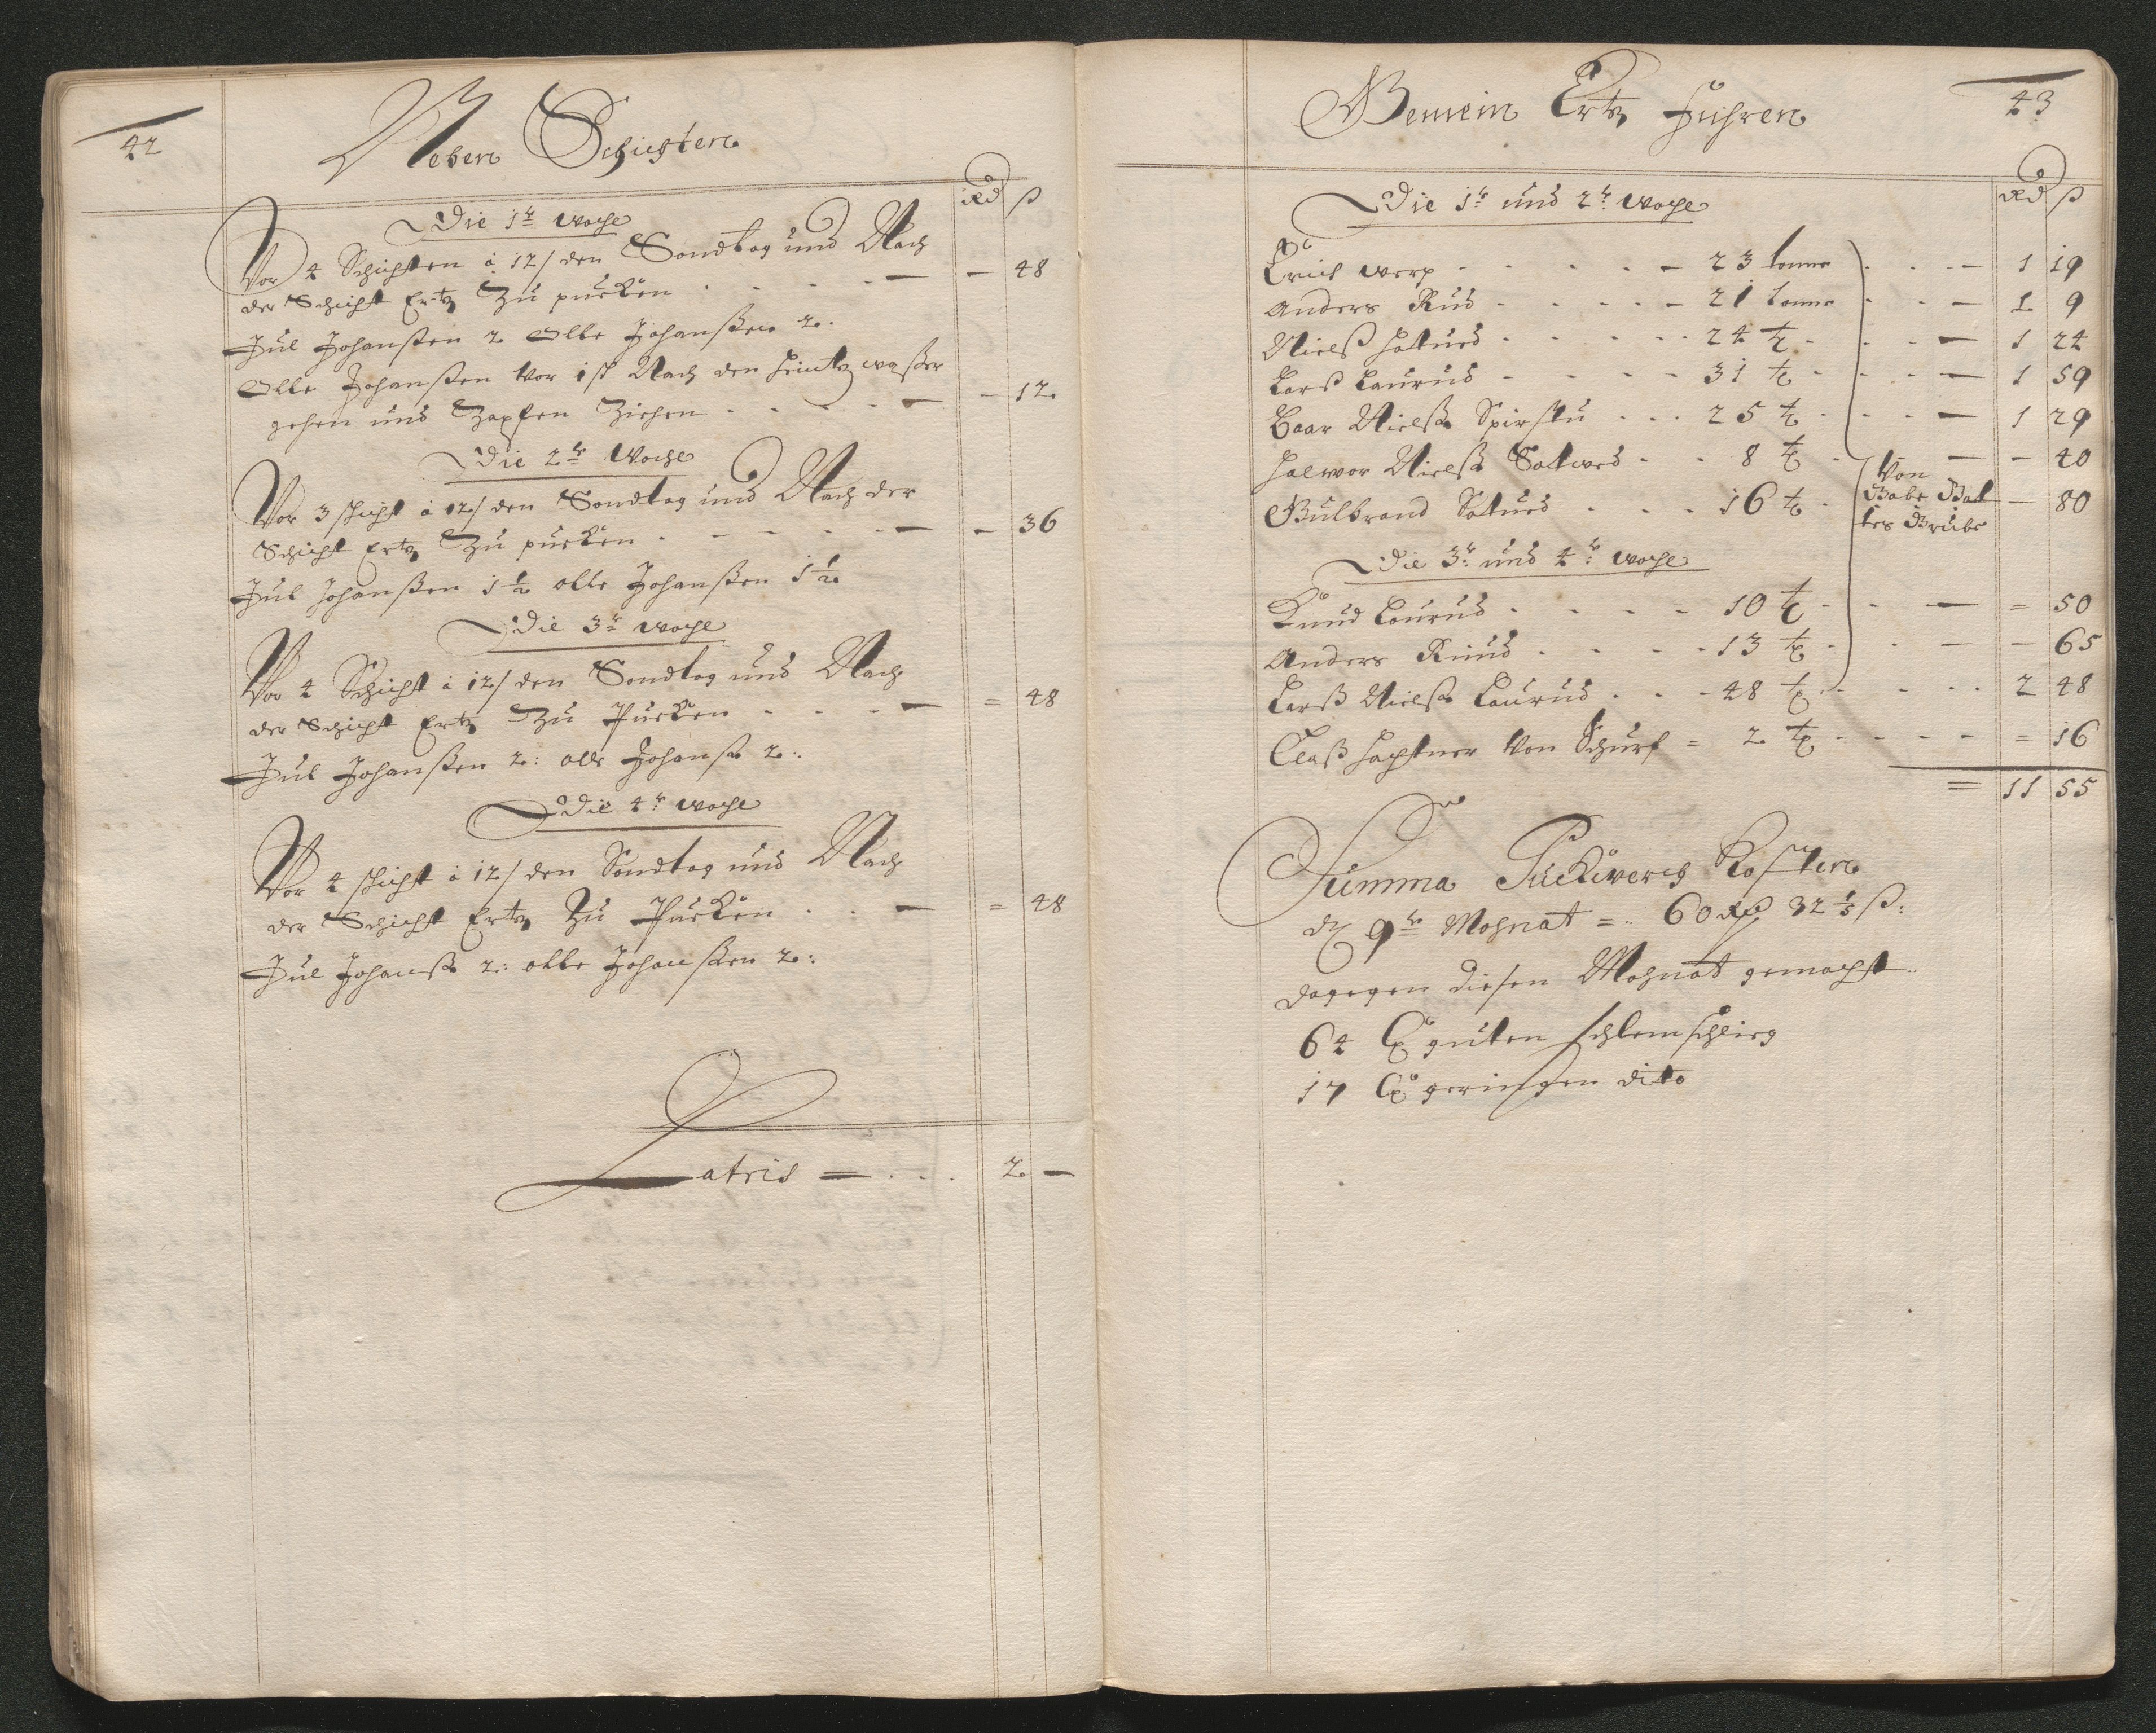 42
Neben Schichten
Rd ß
Die 1te woche
Vor 4 Schichten à 12/ den Sondtag und Nach
der Schicht Ertz Zu pucken - - 48
Jul Johanßen 2 Olle Johanßen 2.
Olle Johanßen vor 1 ß Nach den waßer
gehen und Zapfen Ziehen - - 12.
Die 2te Woche
Vor 3 schicht à 12/ den Sondtag und Nach der
Schicht Ertz Zu pucken - - 36
Jul Johanßen 1½ olle Johanßen 1½
Die 3te woche
Vor 4 Schicht à 12/ den Sondtag und Nach
der Schicht Ertz Zu Pucken - = 48
Jul Johanßen 2: olle Johanß 2:
Die 4te woche
Vor 4 schicht à 12/ den Sondtag und Nach
der Schicht Ertz Zu Pucken - = 48
Jul Johanß 2: olle Johanßen 2:
Latris = 2 -
43
Gemein Ertz fuhren
Rd ß
Die 1te und 2te woche
Erich werp - 23 tonne - 1 19
Anders Rud - 21 tonne - 1 9
Nielß - 24 t - 1 24
Larß Laurud - 31 t - 1 59
Baar Nielß Spirstu - 25 t - 1 29
Halwor Nielß - 8 t - - 40
Gulbrand - 16 t - 80
Von
Gabe Got
tes Grube
Die 3te und 4te woche
Knud Laurud - 10 t - = 50
Anders Ruud - 13 t - - 65
Larß Nielß Laurud - 48 t - 2 48
Claß von Schurf = 2 t - = 16
= 11 55
Summa Puckwerch Kosten
d 9te Mohnat = 60 Rd 32 ß:
dagegen diesen Mohnat gemacht
64 C guten schlemschlieg
17 C geringen dito